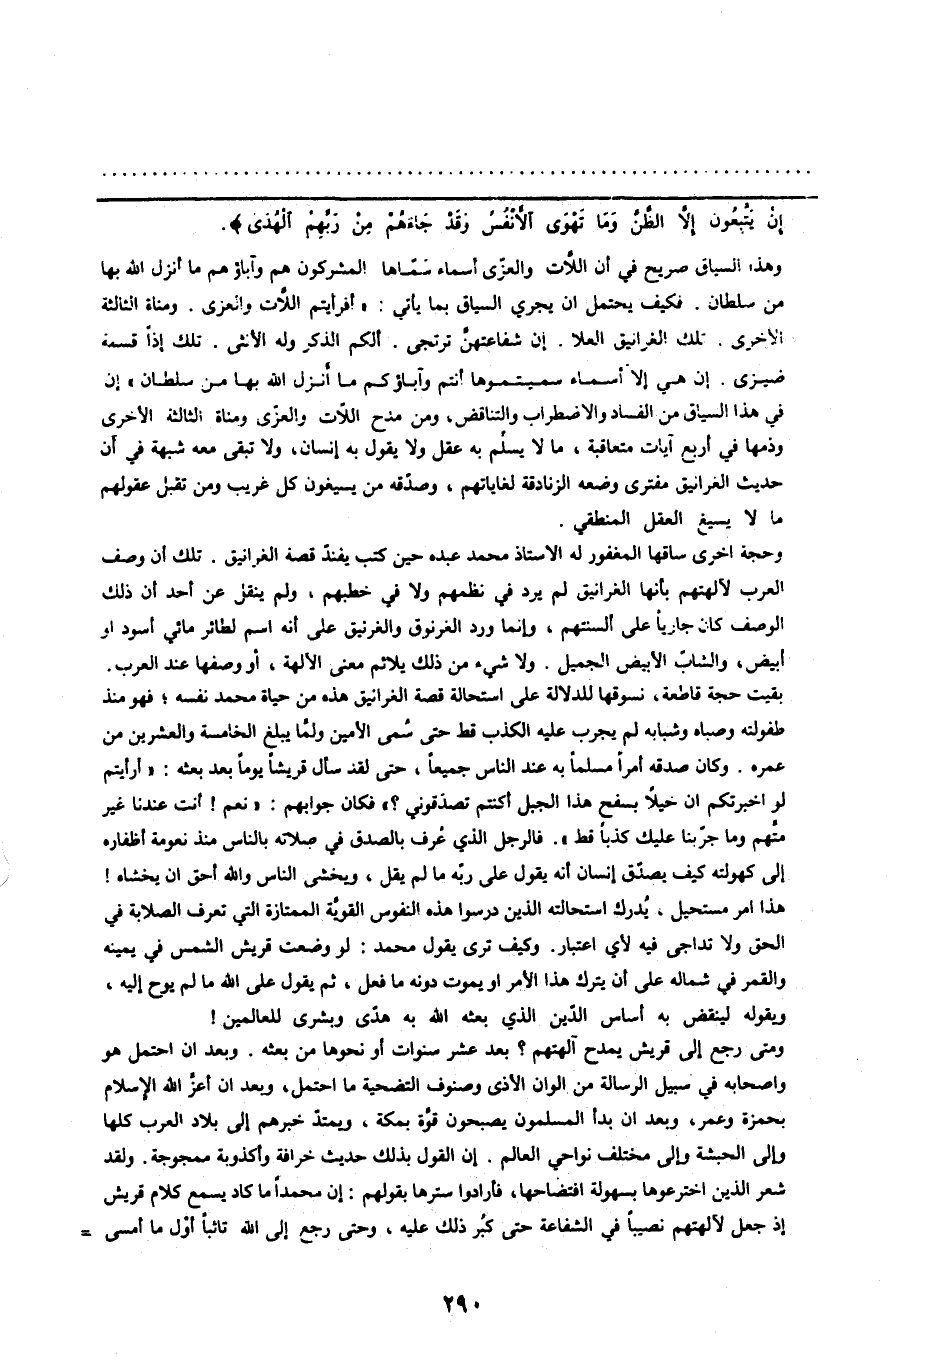 إِنْ يَتَّبِعُونَ إِلَّا الظَّنَّ وَمَا تَهْوَى الْأَنْفُسُ وَقَدْ جَاءَهُمْ مِنْ رَبِّهِمْ الْهُدَى ﴾.
وهذا السياق صريح في أن اللّات والعزّى أسماء سَمَّاها المشركون هم وآباؤ هم ما أنزل الله بها
من سلطان . فكيف يحتمل ان يجري السياق بما يأتي : « أفرأيتم اللّات والعزى . ومناة الثالثة
الأخرى . تلك الغرانيق العلا . إن شفاعتهنَّ ترتجى . ألكم الذكر وله الأنثى . تلك إذاً قسمة
ضيزى . إن هي إلا أسماء سميتموها أنتم وآباؤ كم ما أنزل الله بها من سلطان » إن
في هذا السياق من الفساد والاضطراب والتناقض، ومن مدح اللّات والعزّى ومناة الثالثة الأخرى
وذمها في أربع آيات متعاقبة ، ما لا يسلّم به عقل ولا يقول به إنسان، ولا تبقى معه شبهة في أن
حديث الغرانيق مفترى وضعه الزنادقة لغاياتهم ، وصدّقه من يسيغون كل غريب ومن تقبل عقولهم
ما لا يسيغ العقل المنطقي .
وحجة اخرى ساقها المغفور له الاستاذ محمد عبده حين كتب يفندّ قصة الغرانيق . تلك أن وصف
العرب لآلهتهم بأنها الغرانيق لم يرد في نظمهم ولا في خطبهم ، ولم ينقل عن أحد أن ذلك
الوصف كان جارياً على ألسنتهم ، وإنما ورد الغرنوق والغرنيق على أنه اسم لطائر مائي أسود او
أبيض، والشابّ الأبيض الجميل . ولا شيء من ذلك يلائم معنى الآلهة ، أو وصفها عند العرب.
بقيت حجة قاطعة، نسوقها للدلالة على استحالة قصة الغرانيق هذه من حياة محمد نفسه ؛ فهو منذ
طفولته وصباه وشبابه لم يجرب عليه الكذب قط حتى سُمى الأمين ولمَّا يبلغ الخامسة والعشرين من
عمره . وكان صدقه أمراً مسلماً به عند الناس جميعاً ، حتى لقد سأل قريشاً يوماً بعد بعثه : « أرأيتم
لو اخبرتكم ان خيلاً بسفح هذا الجبل أكنتم تصدّقوني ؟» فكان جوابهم : « نعم ! أنت عندنا غير
متَّهم وما جرّبنا عليك كذباً قط ». فالرجل الذي عُرف بالصدق في صِلاته بالناس منذ نعومة أظفاره
إلى كهولته كيف يصدّق إنسان أنه يقول على ربّه ما لم يقل ، ويخشى الناس والله أحق ان يخشاه !
هذا امر مستحيل ، يُدرك استحالته الذين درسوا هذه النفوس القويَّة الممتازة التي تعرف الصلابة في
الحق ولا تداجى فيه لأي اعتبار. وكيف ترى يقول محمد : لو وضعت قريش الشمس في يمينه
والقمر في شماله على أن يترك هذا الأمر او يموت دونه ما فعل ، ثم يقول على الله ما لم يوح إليه ،
ويقوله لينقض به أساس الدّين الذي بعثه الله به هدًى وبشرى للعالمين !
ومتى رجع إلى قريش يمدح آلهتهم ؟ بعد عشر سنوات أو نحوها من بعثه . وبعد ان احتمل هو
واصحابه في سبيل الرسالة من الوان الأذى وصنوف التضحية ما احتمل، وبعد ان أعزَّ الله الإسلام
بحمزة وعمر، وبعد ان بدأ المسلمون يصبحون قوَّة بمكة ، ويمتدّ خبرهم إلى بلاد العرب كلها
وإلى الحبشة وإلى مختلف نواحي العالم . إن القول بذلك حديث خرافة وأكذوبة ممجوجة. ولقد
شعر الذين اخترعوها بسهولة افتضاحها، فأرادوا سترها بقولهم : إن محمداً ما كاد يسمع كلام قريش
إذ جعل لآلهتهم نصيباً في الشفاعة حتى كبُر ذلك عليه ، وحتى رجع إلى الله تائباً أوّل ما أمسى =
٢٩٠